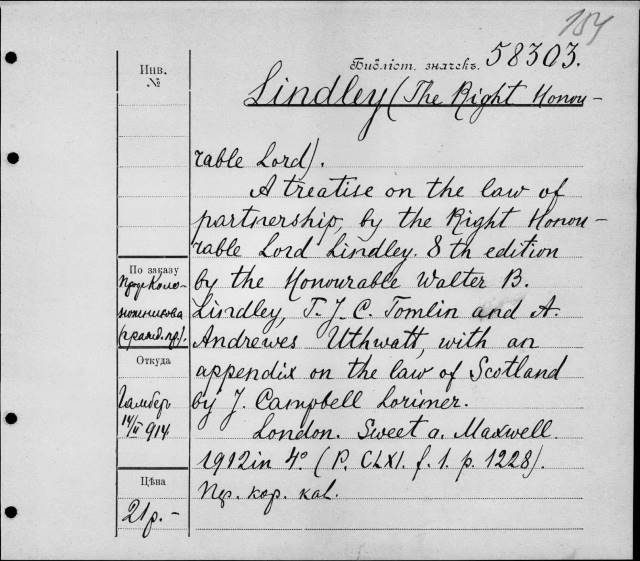 154
Библіот. значекъ. 58303.
Инв.
№
Lindley (The Right Honou-
rable Lord).
A treatise on the law of
partnership, by the Right Honou-
rable Lord Lindley. 8th edition
by the Honourable Walter B.
Lindley, T. J. C. Tomlin and A.
Andrewes Uthwatt, with an
appendix on the law of Scotland
by J. Campbell Lorimer.
London. Sweet a. Maxwell.
1912 in 4º (P. CLXI. f. 1. p. 1228).
кор. kal.
По заказу
Проф. Коло-
(гражд. пр.).
Откуда
14/II 914
Цѣна
21 р. -